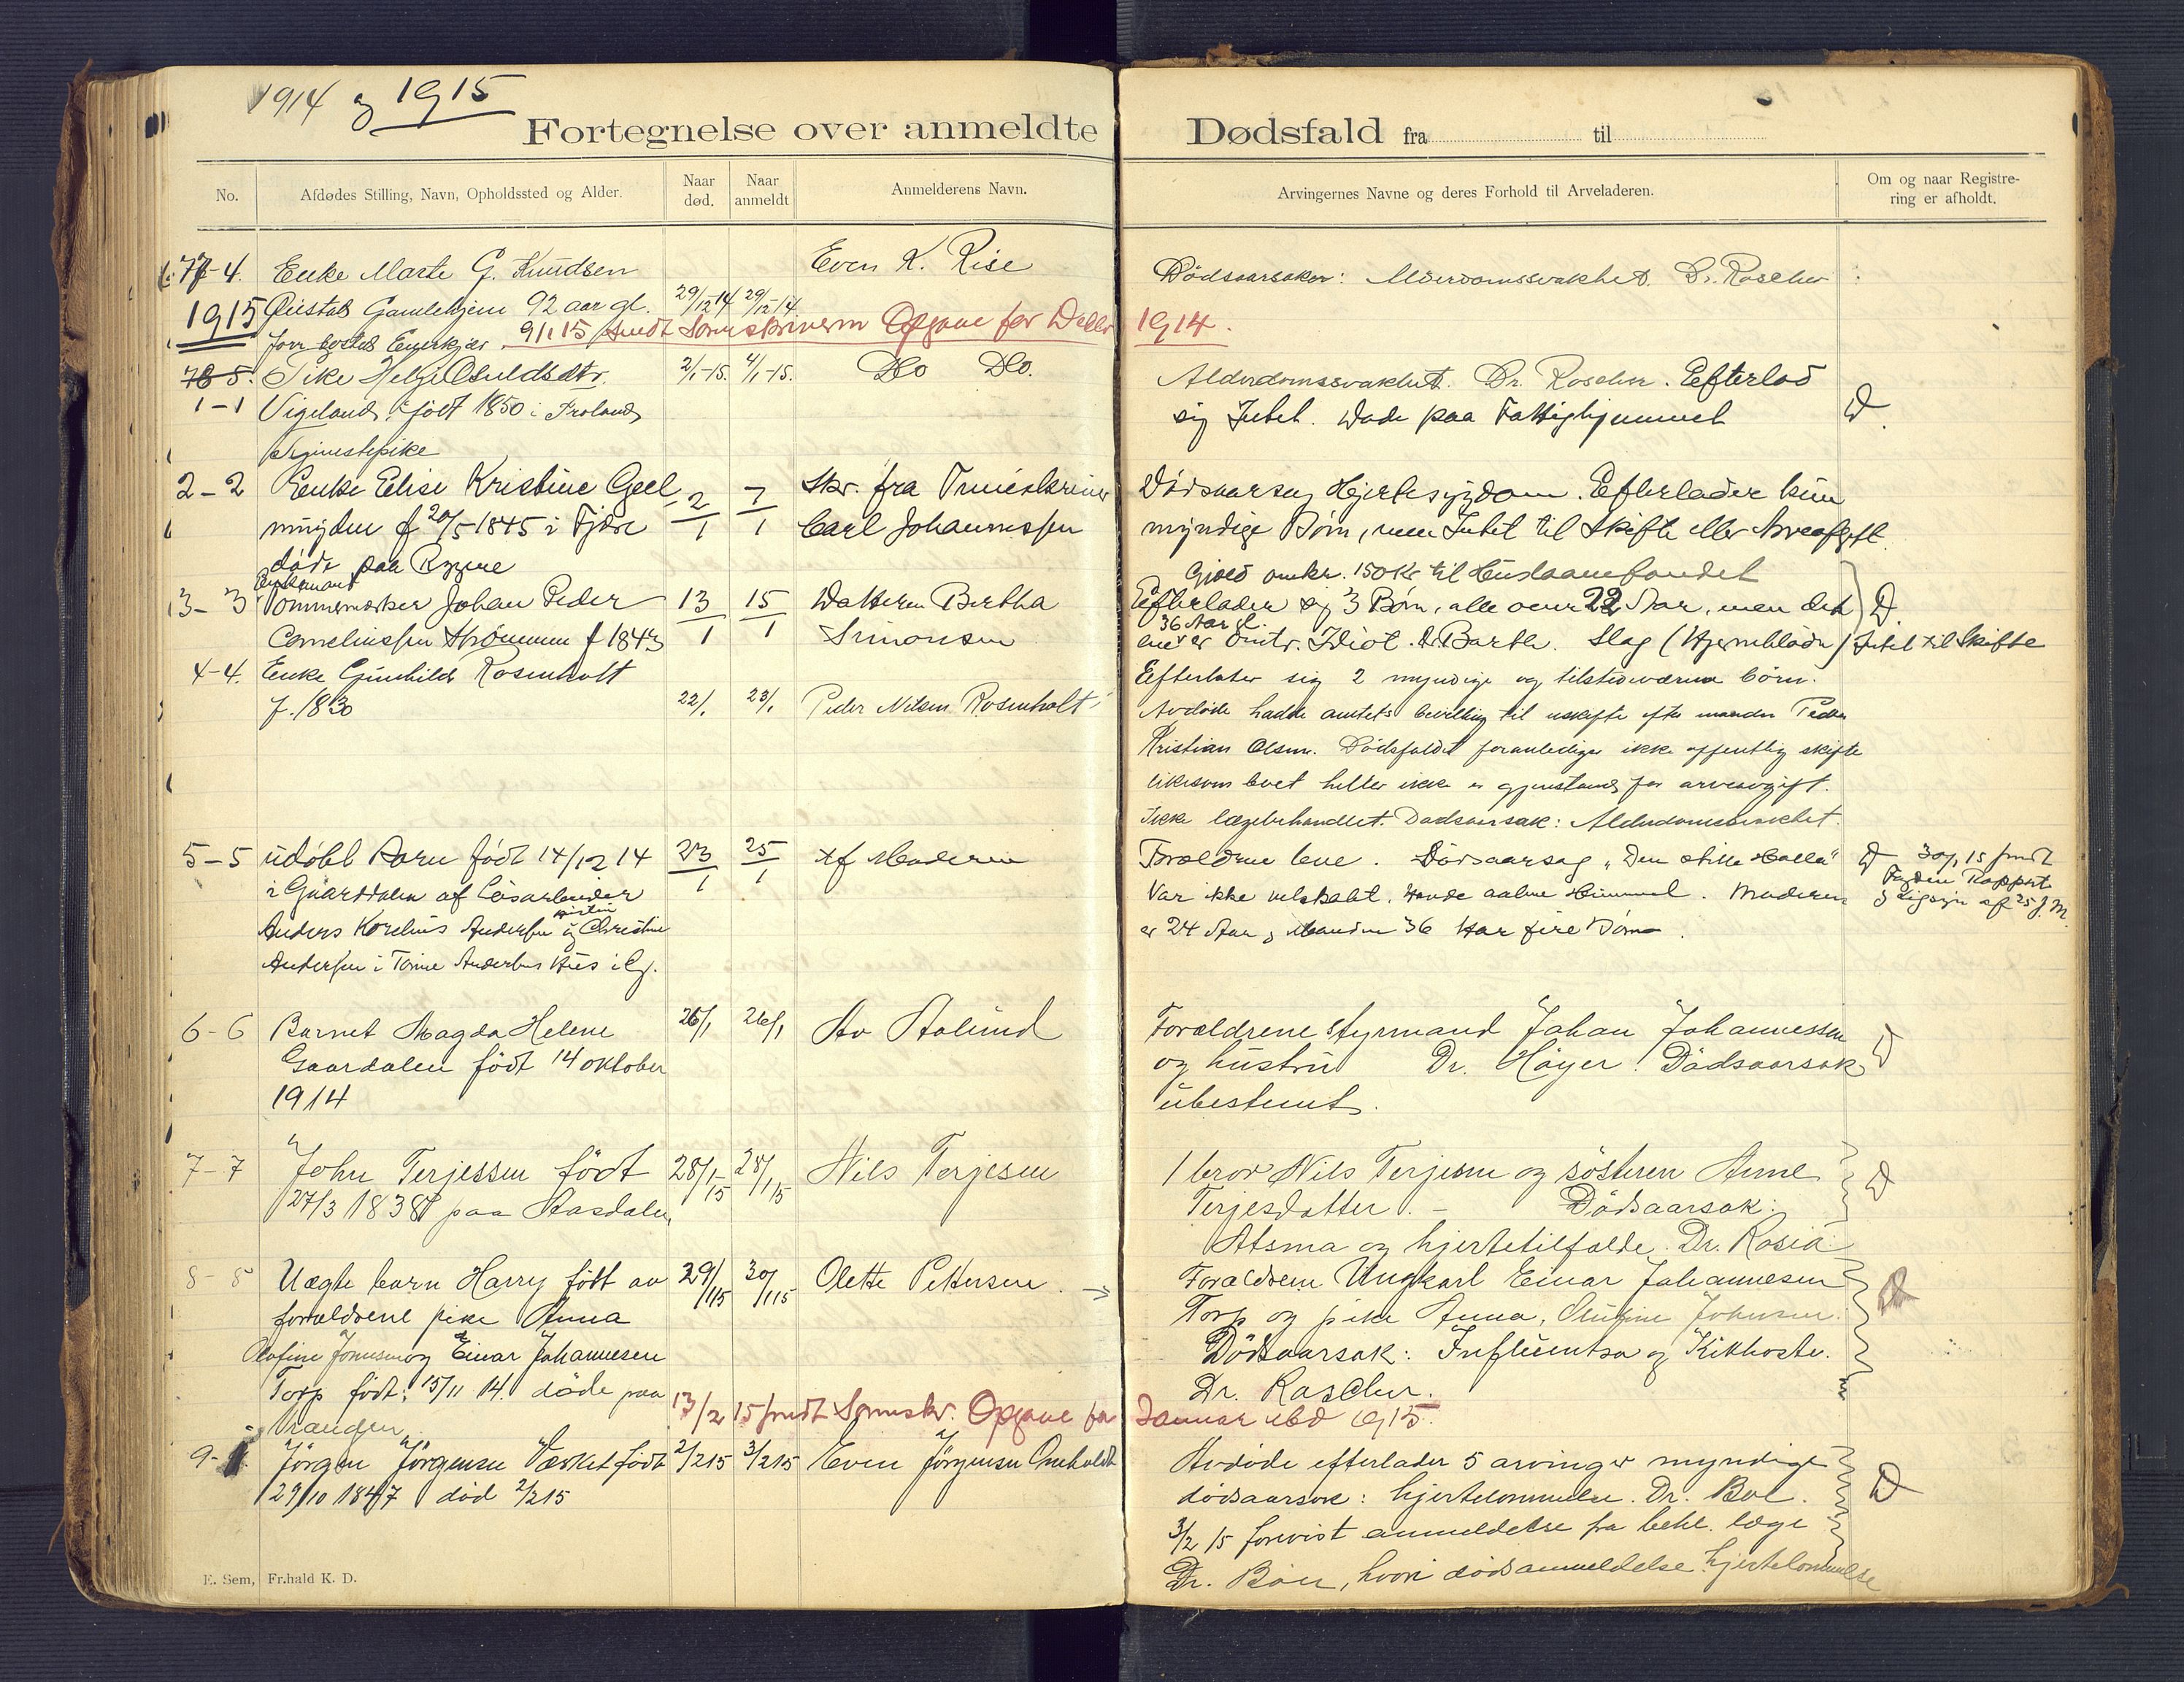 1914 og 1915
Fortegnelse over anmeldte Dødsfald fra til
No. Afdødes Stilling, Navn, Opholdssted og Alder. Naar død. Naar anmeldt Anmelderens Navn. Arvingernes Navne og deres Forhold til Arveladeren. Om og naar Registrering er afholdt.
77-4. Enke Marte G. Knudsen Even K. Rise Dødsaarsaken: Alderdomssvakhet. Dr. Roscher
1915 Øiestad Gamlehjem 92 aar gl. 29/12 14 29/12 14
9/1 15 sendt Sorenskriveren Opgave for 1914.
78 5. Pike Helje Osuldsdtr. 2/1-15. 4/1-15. Do Do. Alderdomssvakhet. Dr. Roscher. Efterlod
1-1 Vigeland, født 1850 i Froland, sig Intet. Døde paa Fattighjemmet D.
2-2 Enke Elise Kristine Geel 2/1 7/1 Skr. fra Carl Johannessen Dødsaarsag Hjertesygdom. Efterlader kun
f 20/5 1845 i Fjære myndige Børn, men Intet til Skifte eller Arveafgift.
døde paa Rygene
Gjæld omkr. 150 Kr til Huslaanefondet
Enkemand
3-3 Tømmermerker Johan Peder 13/1 15/1 Datteren Bertha Efterlader sig 3 Børn, alle over 22 Aar, men det D.
36 Aar gl.
Corneliussen f 1843 Simonsen ene er Idiot. Dr. Barth. Slag (Hjerneblødn) Intet til Skifte
4-4. Enke Gunhild Rosenholt Efterlater sig 2 myndige og tilstedeværene børn.
f. 1830 22/1 23/1 Peder Nilsen Rosenholt Avdøde hadde amtets bevilling til uskifte efter manden Peder
Kristian Olsen. Dødsfaldet foranlediger ikke offentlig skifte
likesom boet heller ikke er gjenstand for arveavgift.
Ikke lægebehandlet. Dødsaarsak: Alderdomssvakhet.
5-5 udøbt Barn født 14/12 14 23/1 25/1 Af Moderen Forældrene leve. Dødsaarsag "Den 30/1 15 sendt
i Guarddalen af Løsarbeider Var ikke velskabt. Havde aabne Himmel. Moderen
Anders Kornelius Andersen og Christine er 24 Aar og Manden 36 Har fire Børn.
Andersen i Andersens Hus
6-6 Barnet Magda Helene 26/1 26/1 Av Aalund Forældrene styrmand Johan Johannessen D
Gaardalen født 14 oktober og hustru Dr. Høyer. Dødsaarsak
1914 ubestemt.
7-7 John Terjessen født 28/1-15 28/1 15 Nils Terjesen 1 bror Nils Terjesen og søsteren Anne D
27/3 1838 paa Aasdalen Terjesdatter. - Dødsaarsak:
Atsma og hjertetilfælde. Dr.
8-8 Uægte barn Harry født av 29/1 15 30/1 15 Olette Pettersen. Forældrene Ungkarl Einar Johannesen D
forældrene pike Anna Torp og pike Anna, Olufine Johnsen.
Olufine og Einar Johannesen Dødsaarsak: Influentsa og Kikhoste.
Torp født: 15/11 14. døde paa Dr. Roscher.
Vrangen
13/2 15 sendt Sorenskr. Opgave for Januar 1915.
9- Jørgen Jørgensen født 2/2 15 3/2 15 Even Jørgensen Avdøde efterlader 5 arvinger myndige D
29/10 1847 død 2/2 15 dødsaarsak: hjertelammelse. Dr. Boe.
3/2 15 forevist anmeldelse fra beh. læge
Dr. Boe, hvori dødsanmeldelse hjertelammelse
E. Sem, Fr.hald K. D.